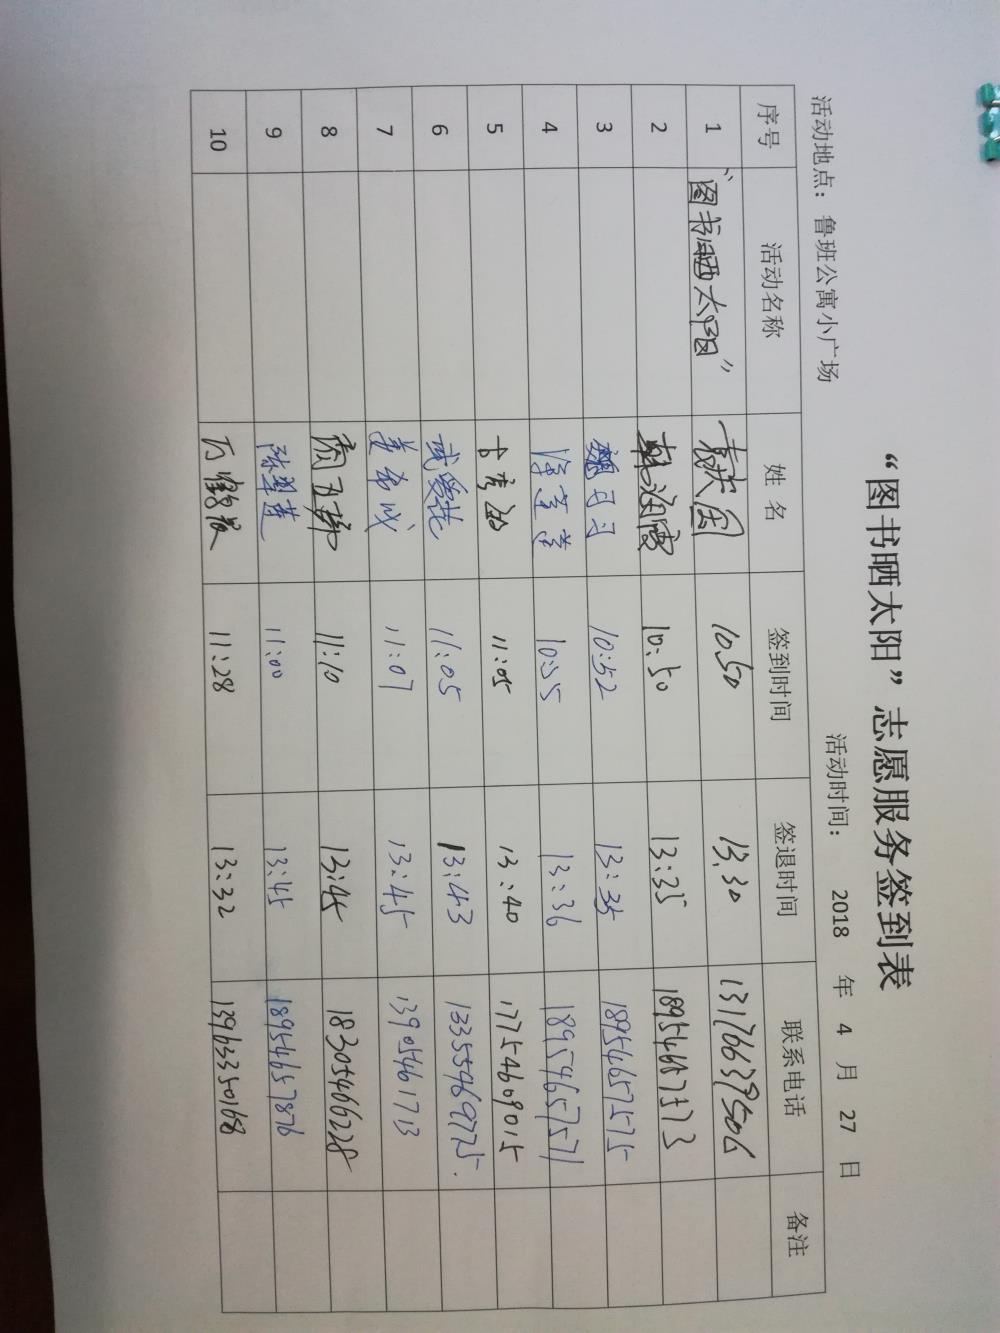 “图书晒太阳”志愿服务签到表
活动地点：鲁班公寓小广场 活动时间： 2018 年 4 月 27 日
序号 活动名称 姓 名 签到时间 签退时间 联系电话 备注
1 “图书晒太阳” 10.50 13.30
2 10:50 13:35 18954657573
3 魏可可 10:52 13:35 18954657575
4 10:55 13:36 18954657571
5 11:05 13:40 17754609015
6 武爱花 11:05 13:43 13355469725.
7 姜希成 11:07 13:45 13905461713
8 11:10 13:45 18305466228
9 陈翠莲 11:00 13:45 18954657876
10 11:28 13:32 13963350168